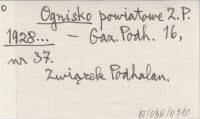 Ognisko powiatowe Z.P.
1928... – Gaz. Podh. 16,
nr 37.
Związek Podhalan.